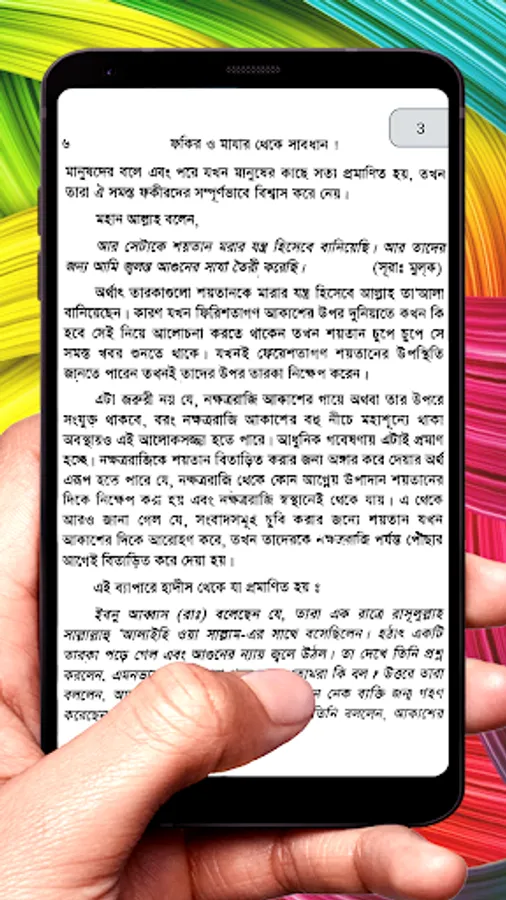 3
৬ ফকির ও মাযার থেকে সাবধান !
মানুষদের বলে এবং পরে যখন মানুষের কাছে সত্য প্রমাণিত হয়, তখন
তারা ঐ সমস্ত ফকীরদের সম্পূর্ণভাবে বিশ্বাস করে নেয়।
মহান আল্লাহ বলেন,
আর সেটাকে শয়তান মরার যন্ত্র হিসেবে বানিয়েছি। আর তাদের
জন্য আমি জ্বলন্ত আগুনের সাযা তৈরী করেছি। (সূরাঃ মুল্‌ক)
অর্থাৎ তারকাগুলো শয়তানকে মারার যন্ত্র হিসেবে আল্লাহ তা'আলা
বানিয়েছেন। কারণ যখন ফিরিশতাগণ আকাশের উপর দুনিয়াতে কখন কি
হবে সেই নিয়ে আলোচনা করতে থাকেন তখন শয়তান চুপে চুপে সে
সমস্ত খবর শুনতে থাকে। যখনই ফেরেশতাগণ শয়তানের উপস্থিতি
জানতে পারেন তখনই তাদের উপর তারকা নিক্ষেপ করেন।
এটা জরুরী নয় যে, নক্ষত্ররাজি আকাশের গায়ে অথবা তার উপরে
সংযুক্ত থাকবে, বরং নক্ষত্ররাজি আকাশের বহু নীচে মহাশূন্যে থাকা
অবস্থায়ও এই আলোকসজ্জা হতে পারে। আধুনিক গবেষণায় এটাই প্রমাণ
হচ্ছে। নক্ষত্ররাজিকে শয়তান বিতাড়িত করার জন্য অঙ্গার করে দেয়ার অর্থ
এরূপ হতে পারে যে, নক্ষত্ররাজি থেকে কোন আগ্নেয় উপাদান শয়তানের
দিকে নিক্ষেপ করা হয় এবং নক্ষত্ররাজি স্বস্থানেই থেকে যায়। এ থেকে
আরও জানা গেল যে, সংবাদসমূহ চুরি করার জন্যে শয়তান যখন
আকাশের দিকে আরোহণ করে, তখন তাদেরকে নক্ষত্ররাজি পর্যন্ত পৌঁছার
আগেই বিতাড়িত করে দেয়া হয়।
এই ব্যাপারে হাদীস থেকে যা প্রমাণিত হয় ঃ
ইবনু আব্বাস (রাঃ) বলেছেন যে, তারা এক রাত্রে রাসূলুল্লাহ
সাল্লাল্লাহু 'আলাইহি ওয়া সাল্লাম-এর সাথে বসেছিলেন। হঠাৎ একটি
তারকা পড়ে গেল এবং আগুনের ন্যায় জ্বলে উঠল। তা দেখে তিনি প্রশ্ন
করলেন, কি বল ? উত্তরে তারা
বললেন, নেক ব্যক্তি জন্ম গ্রহণ
করেছেন তিনি বললেন, আকাশের